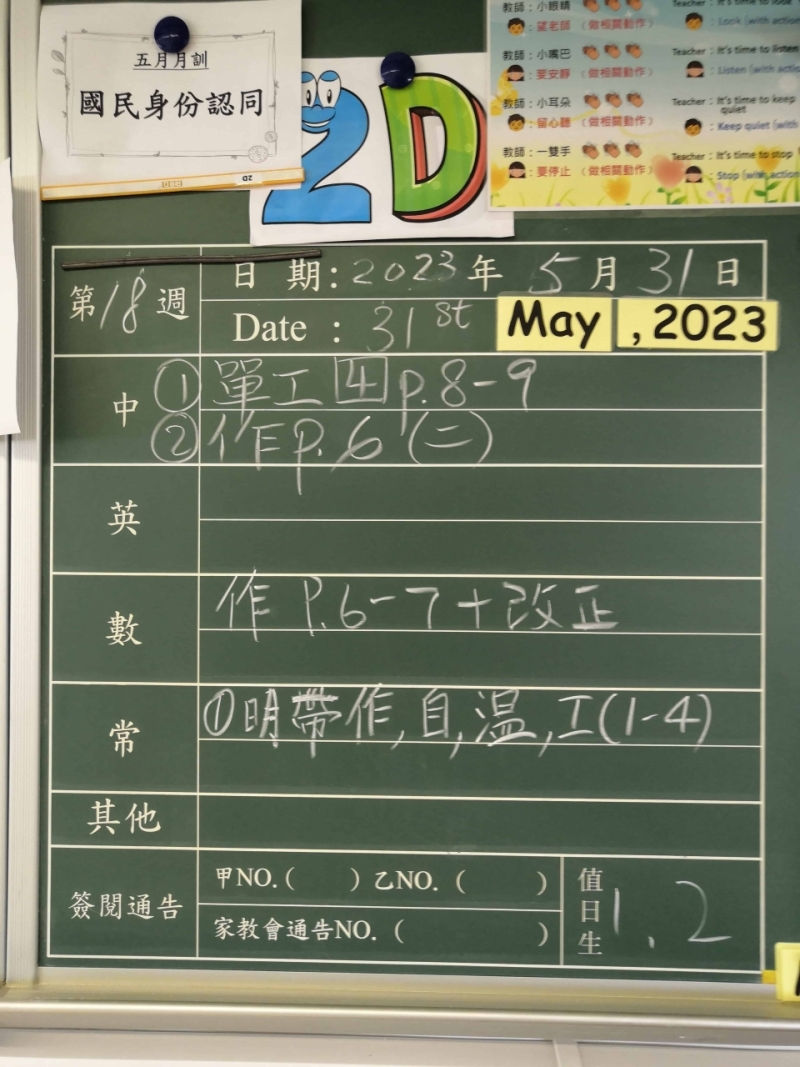 五月月訓
國民身份認同
2D
教師：小眼睛
：望老師（做相關動作）
教師：小嘴巴
：要安靜（做相關動作）
教師：小耳朵
：留心聽（做相關動作）
教師：一雙手
：要停止（做相關動作）
Teacher : It's time to look
: Look (with action
Teacher : It's time to listen
: Listen (with action
Teacher : It's time to keep
quiet
: Keep quiet (with
Teacher : It's time to stop
: Stop (with action
第18週
日 期：2023年 5月31日
Date : 31st May , 2023
中 ① 單工 4 p.8-9
② 作P.6 (二)
英
數 作 P.6-7+改正
常 ①明帶作,自,溫,工(1-4)
其他
簽閱通告 甲NO.( ) 乙NO. ( )
家教會通告NO. ( )
值日生 1.2